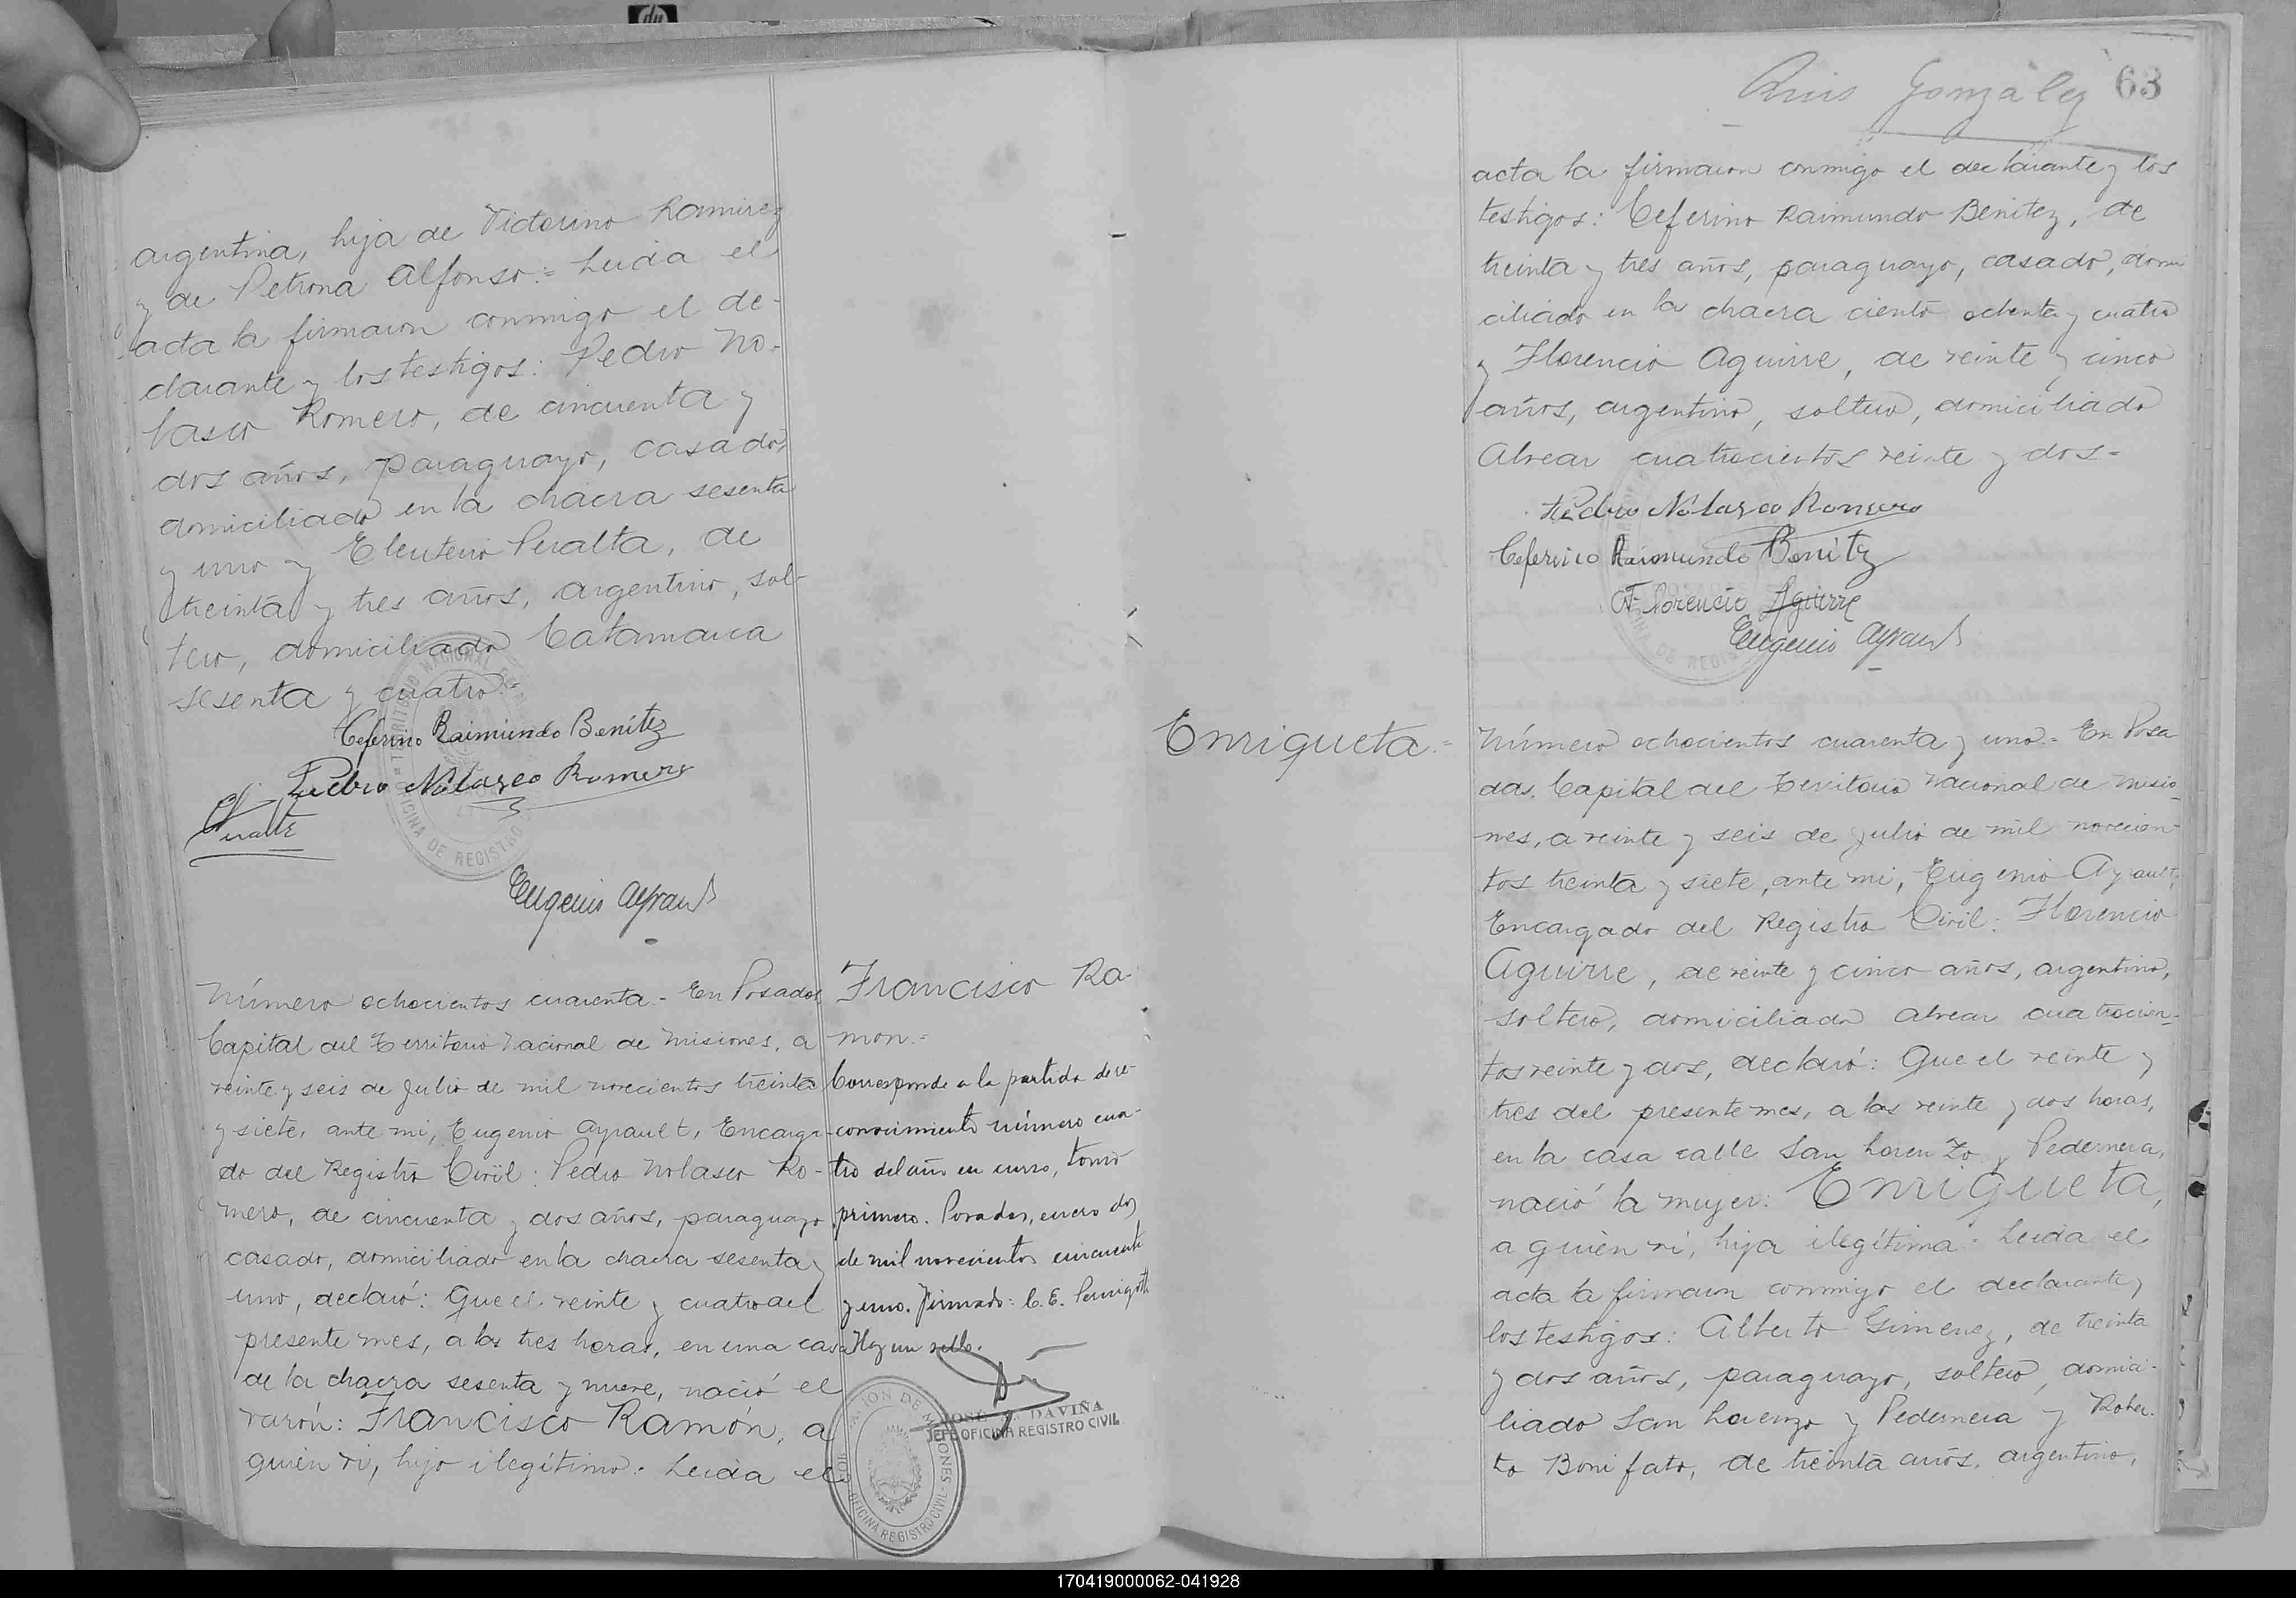 argentina, hija de Victorino Ramirez
y de Petrona Alfonso.= Leida el
acta la firmaron conmigo el de-
clarante y los testigos: Pedro No-
lasco Romero, de cincuenta y
dos años, paraguayo, casado,
domiciliado en la chacra sesenta
y uno y Eleuterio Peralta, de
treinta y tres años, argentino, sol-
tero, domiciliado Catamarca
sesenta y cuatro.=
Ceferino Raimundo Benítez
Pedro Nolasco Romero
Eugenio Ayrault
Número ochocientos cuarenta.- En Posadas
Capital del Territorio Nacional de Misiones, a
veinte y seis de Julio de mil novecientos treinta
y siete, ante mi, Eugenio Ayrault, Encarga-
do del Registro Civil: Pedro Nolasco Ro-
mero, de cincuenta y dos años, paraguayo
casado, domiciliado en la chacra sesenta y
uno, declaró: Que el veinte y cuatro del
presente mes, a las tres horas, en una casa
de la chacra sesenta y nueve, nació el
varón: Francisco Ramón, a
quién ví, hijo ilegítimo. Leida el
Francisco Ra-
mon.=
Corresponde a la partida de re-
conocimiento número cua-
tro del año en curso, tomo
primero. Posadas, enero dos
de mil novecientos cincuenta
y uno. Firmado: C. E.
Hay un sello.
JOSÉ DAVIÑA
JEFE OFICINA REGISTRO CIVIL
OFICINA REGISTRO CIVIL
Ruis Gonzàlez 63
acta la firmaron conmigo el declarante y los
testigos: Ceferino Raimundo Benitez, de
treinta y tres años, paraguayo, casado, domi
ciliado en la chacra ciento ochenta y cuatro
y Florencio Aguirre, de veinte y cinco
años, argentino, soltero, domiciliado
Alvear cuatrocientos veinte y dos.=
Pedro Nolasco Romero
Ceferino Raimundo Benítez
Florencio Aguirre
Eugenio Ayrault
Enriqueta.=
Número ochocientos cuarenta y uno.= En Posa
das, Capital del Territorio Nacional de Misio-
nes, a veinte y seis de Julio de mil novecien-
tos treinta y siete, ante mi, Eugenio Ayrault,
Encargado del Registro Civil: Florencio
Aguirre, de veinte y cinco años, argentino,
soltero, domiciliado Alvear cuatrocien-
tos veinte y dos, declaró: Que el veinte y
tres del presente mes, a las veinte y dos horas,
en la casa calle San Lorenzo y Pedernera,
nació la mujer: Enriqueta,
a quièn ví, hija ilegítima. Leida el
acta la firmaron conmigo el declarante y
los testigos: Alberto Gimenez, de treinta
y dos años, paraguayo, soltero, domici-
liado San Lorenzo y Pedernera y Rober-
to Bonifato, de treinta años, argentino,
170419000062-041928